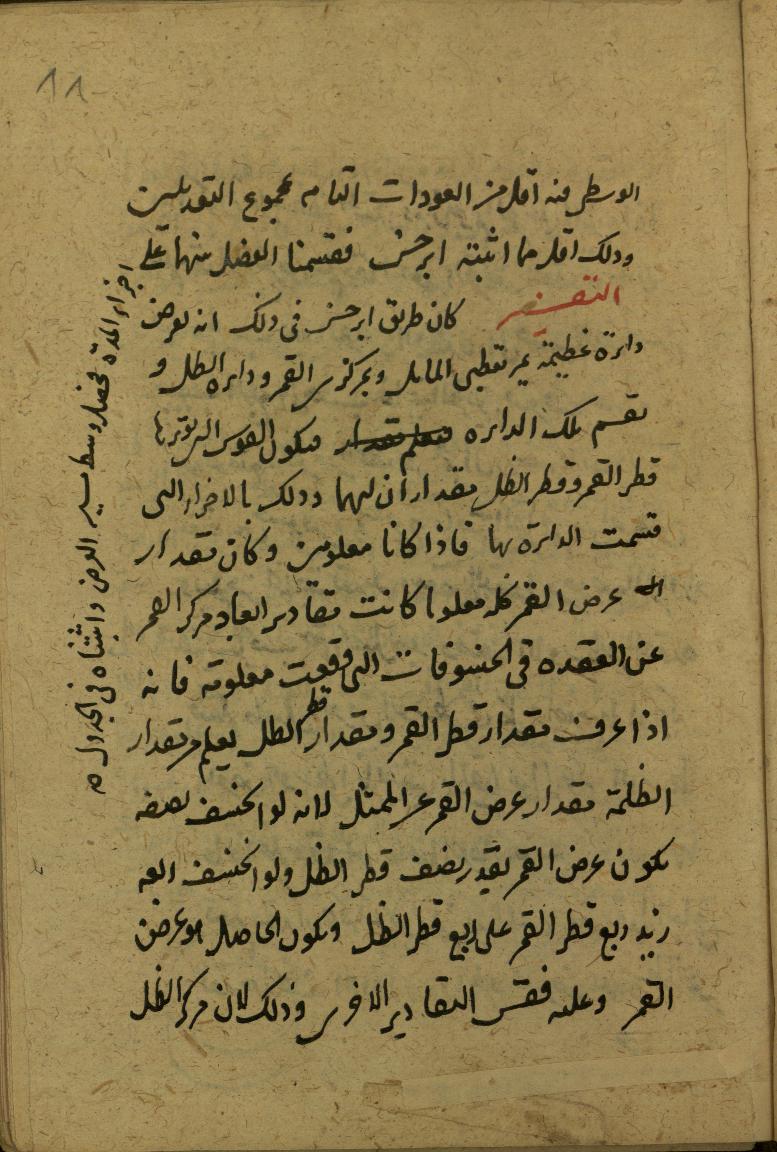 ١٨
الوسطى منه اقل من العودات التامه بمجموع التعديلين
وذلك اقل مما اثبته ابرخس فقسمنا الفضل بينهما على
التفسير كان طريق ابرخس فى ذلك ان نعرض
دايرة عظيمة تمر بقطبى المايل وبمركزى القمر ودايره الظل و
نقسم تلك الدايره فيكون القوس التى يوترها
قطر القمر وقطر الظل مقداران لهما وذلك بالاجزاء التى
قسمت الدايرة بها فاذا كانا معلومين وكان مقدار
عرض القمر كله معلوما كانت مقادير ابعاد مركز القمر
عن العقده فى الخسوفات التى وقعت معلومه فانه
اذا عرف مقدار قطر القمر ومقدار قطر الظل يعلم من مقدار
الظلمة مقدار عرض القمر عن الممثل لانه لو انخسف نصفه
يكون عرض القمر بقدر نصف قطر الظل ولو انخسف ربعه
زيد ربع قطر القمر على ربع قطر الظل ويكون الحاصل هو عرض
القمر وعليه فقس المقادير الاخرى وذلك لان مركز الظل
اجزاء المدة فحصل وسط مسير العرض واثبتناه فى الجدول